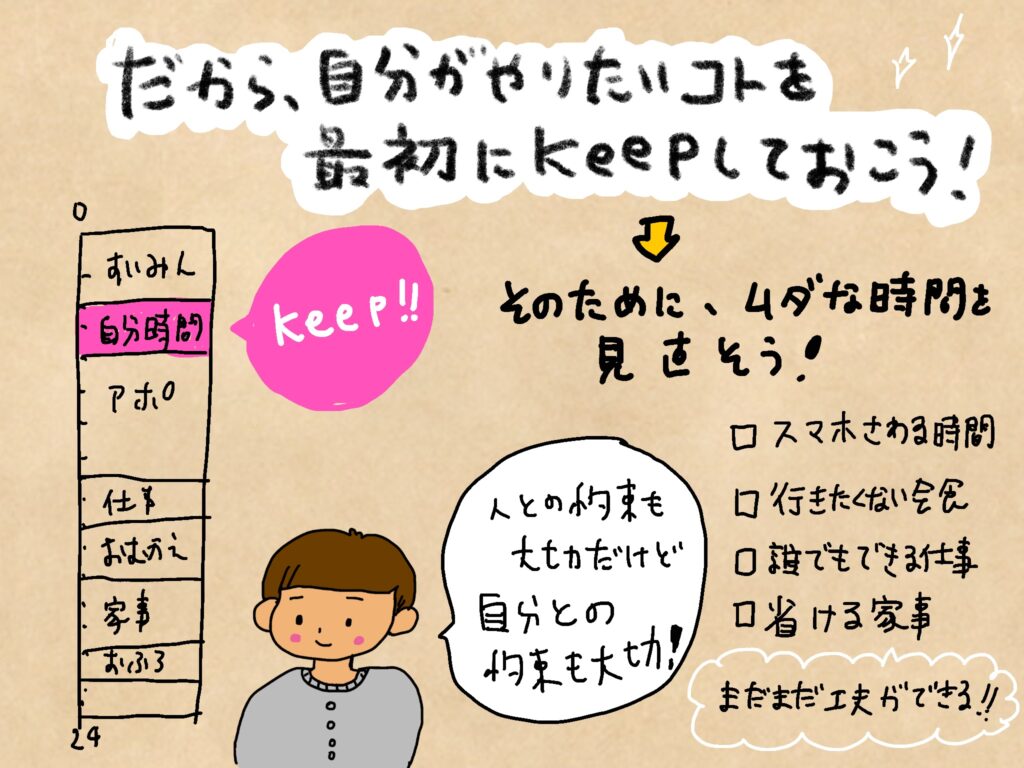 だから、自分がやりたいコトを
最初にkeepしておこう!
0
すいみん
自分時間
アポ
仕事
おむかえ
家事
おふろ
24
keep!!
そのために、ムダな時間を
見直そう!
□ スマホさわる時間
□ 行きたくない会食
□ 誰でもできる仕事
□ 省ける家事
まだまだ工夫ができる!!
人との約束も
大切だけど
自分との
約束も大切!